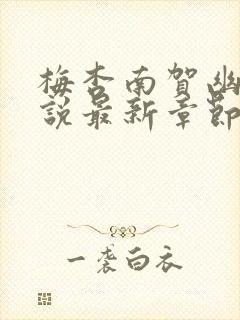 梅杏南賀幽
說最新章節
一袭白衣